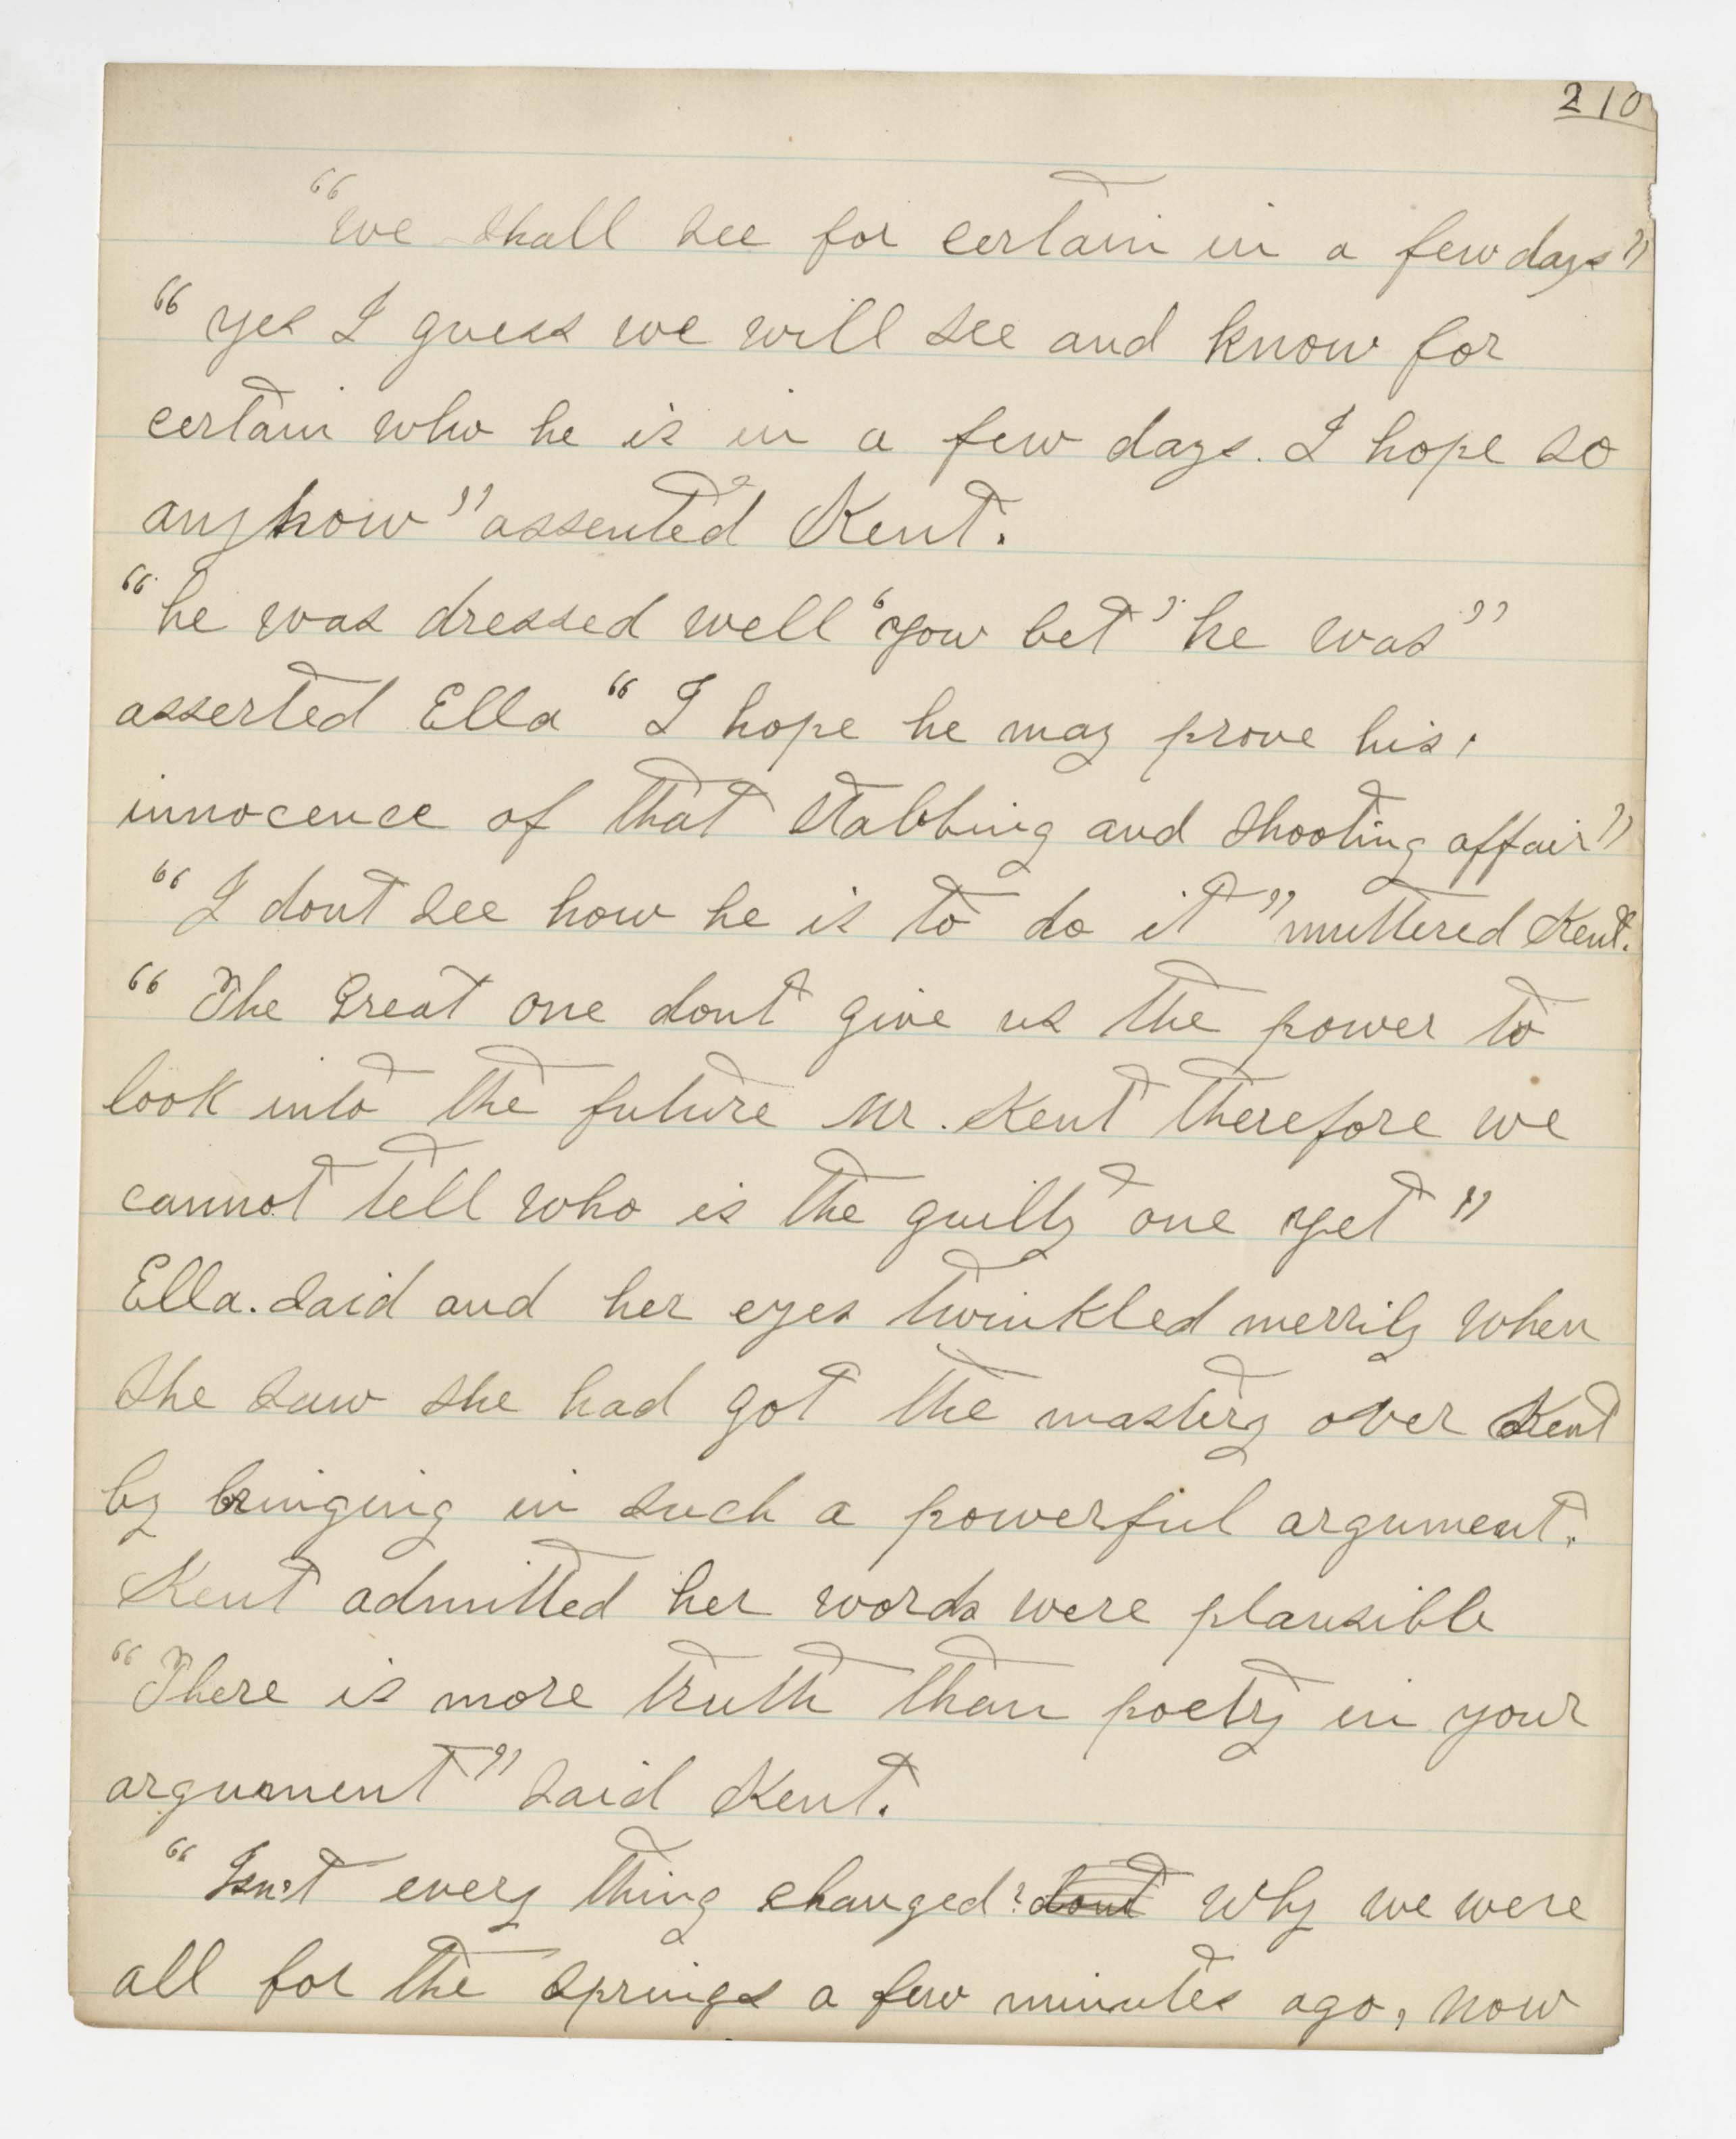 210
"we shall see for certain in a few days"
"yes I guess we will see and know for
certain who he is in a few days. I hope so
anyhow" assented Kent.
"he was dressed well 'you bet' he was"
asserted Ella "I hope he may prove his
innocence of that stabbing and shooting affair"
"I dont see how he is to do it" muttered Kent.
"The Great one dont give us the power to
look into the future Mr. Kent therefore we
cannot tell who is the guilty one yet"
Ella. said and her eyes twinkled merrily when
she saw she had got the mastery over Kent
by bringing in such a powerful argument.
Kent admitted her words were plausible
"There is more truth than poetry in your
argument" said Kent.
"Isn't every thing changed? dont Why we were
all for the springs a few minutes ago, now